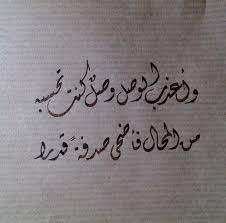 وأعذب الوصل وصلٌ كنت تحسبه
من المحال فأضحى صدفةً قدرا